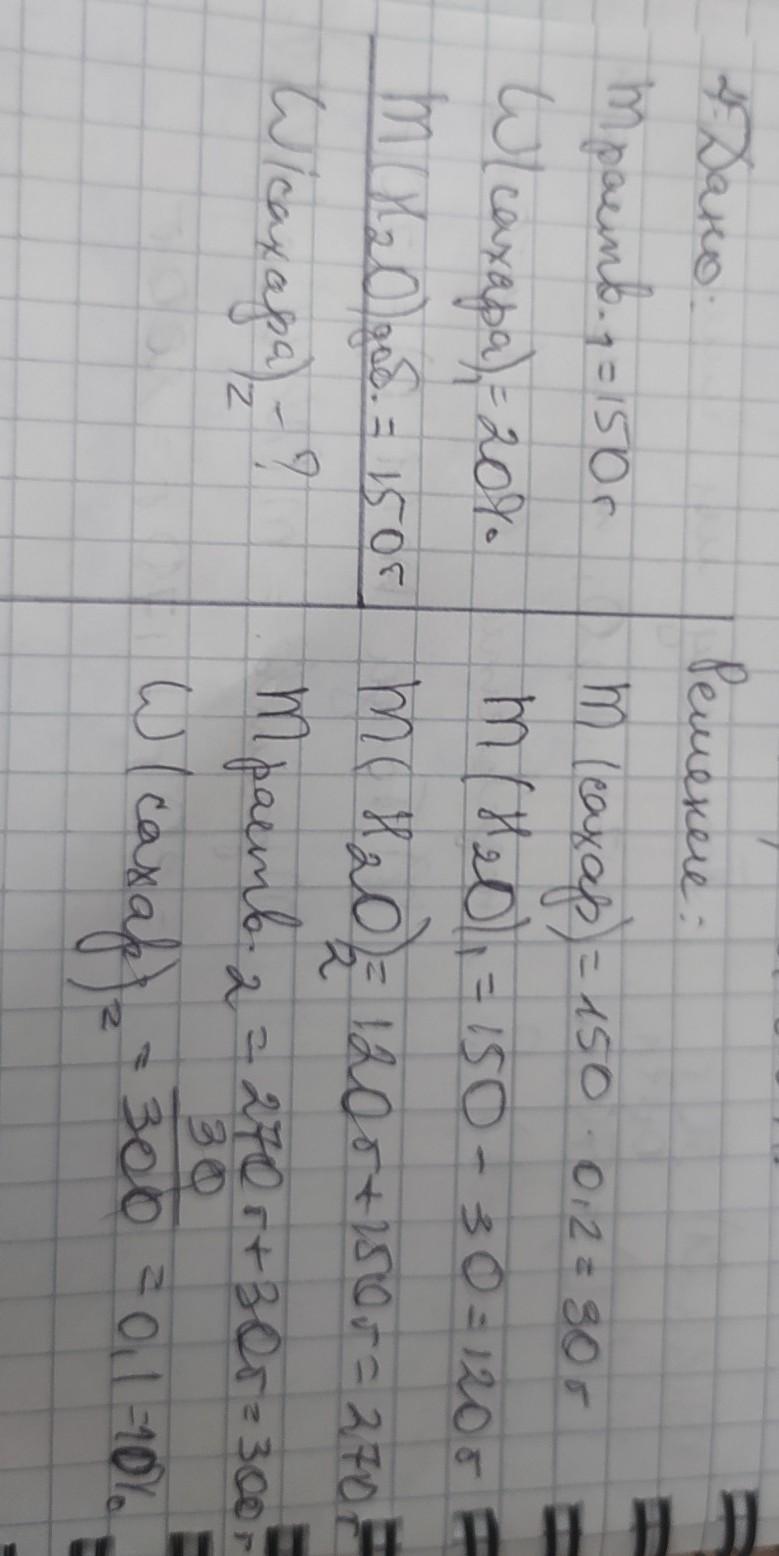 Дано:
m раств. 1 = 150 г
W(сахара)1 = 20%
m(H2O)доб. = 150 г
W(сахара)2 - ?
Решение:
m(сахар) = 150 · 0,2 = 30 г
m(H2O)1 = 150 - 30 = 120 г
m(H2O)2 = 120 г + 150 г = 270 г
m раств. 2 = 270 г + 30 г = 300 г
W(сахар)2 = 30/300 = 0,1 = 10%